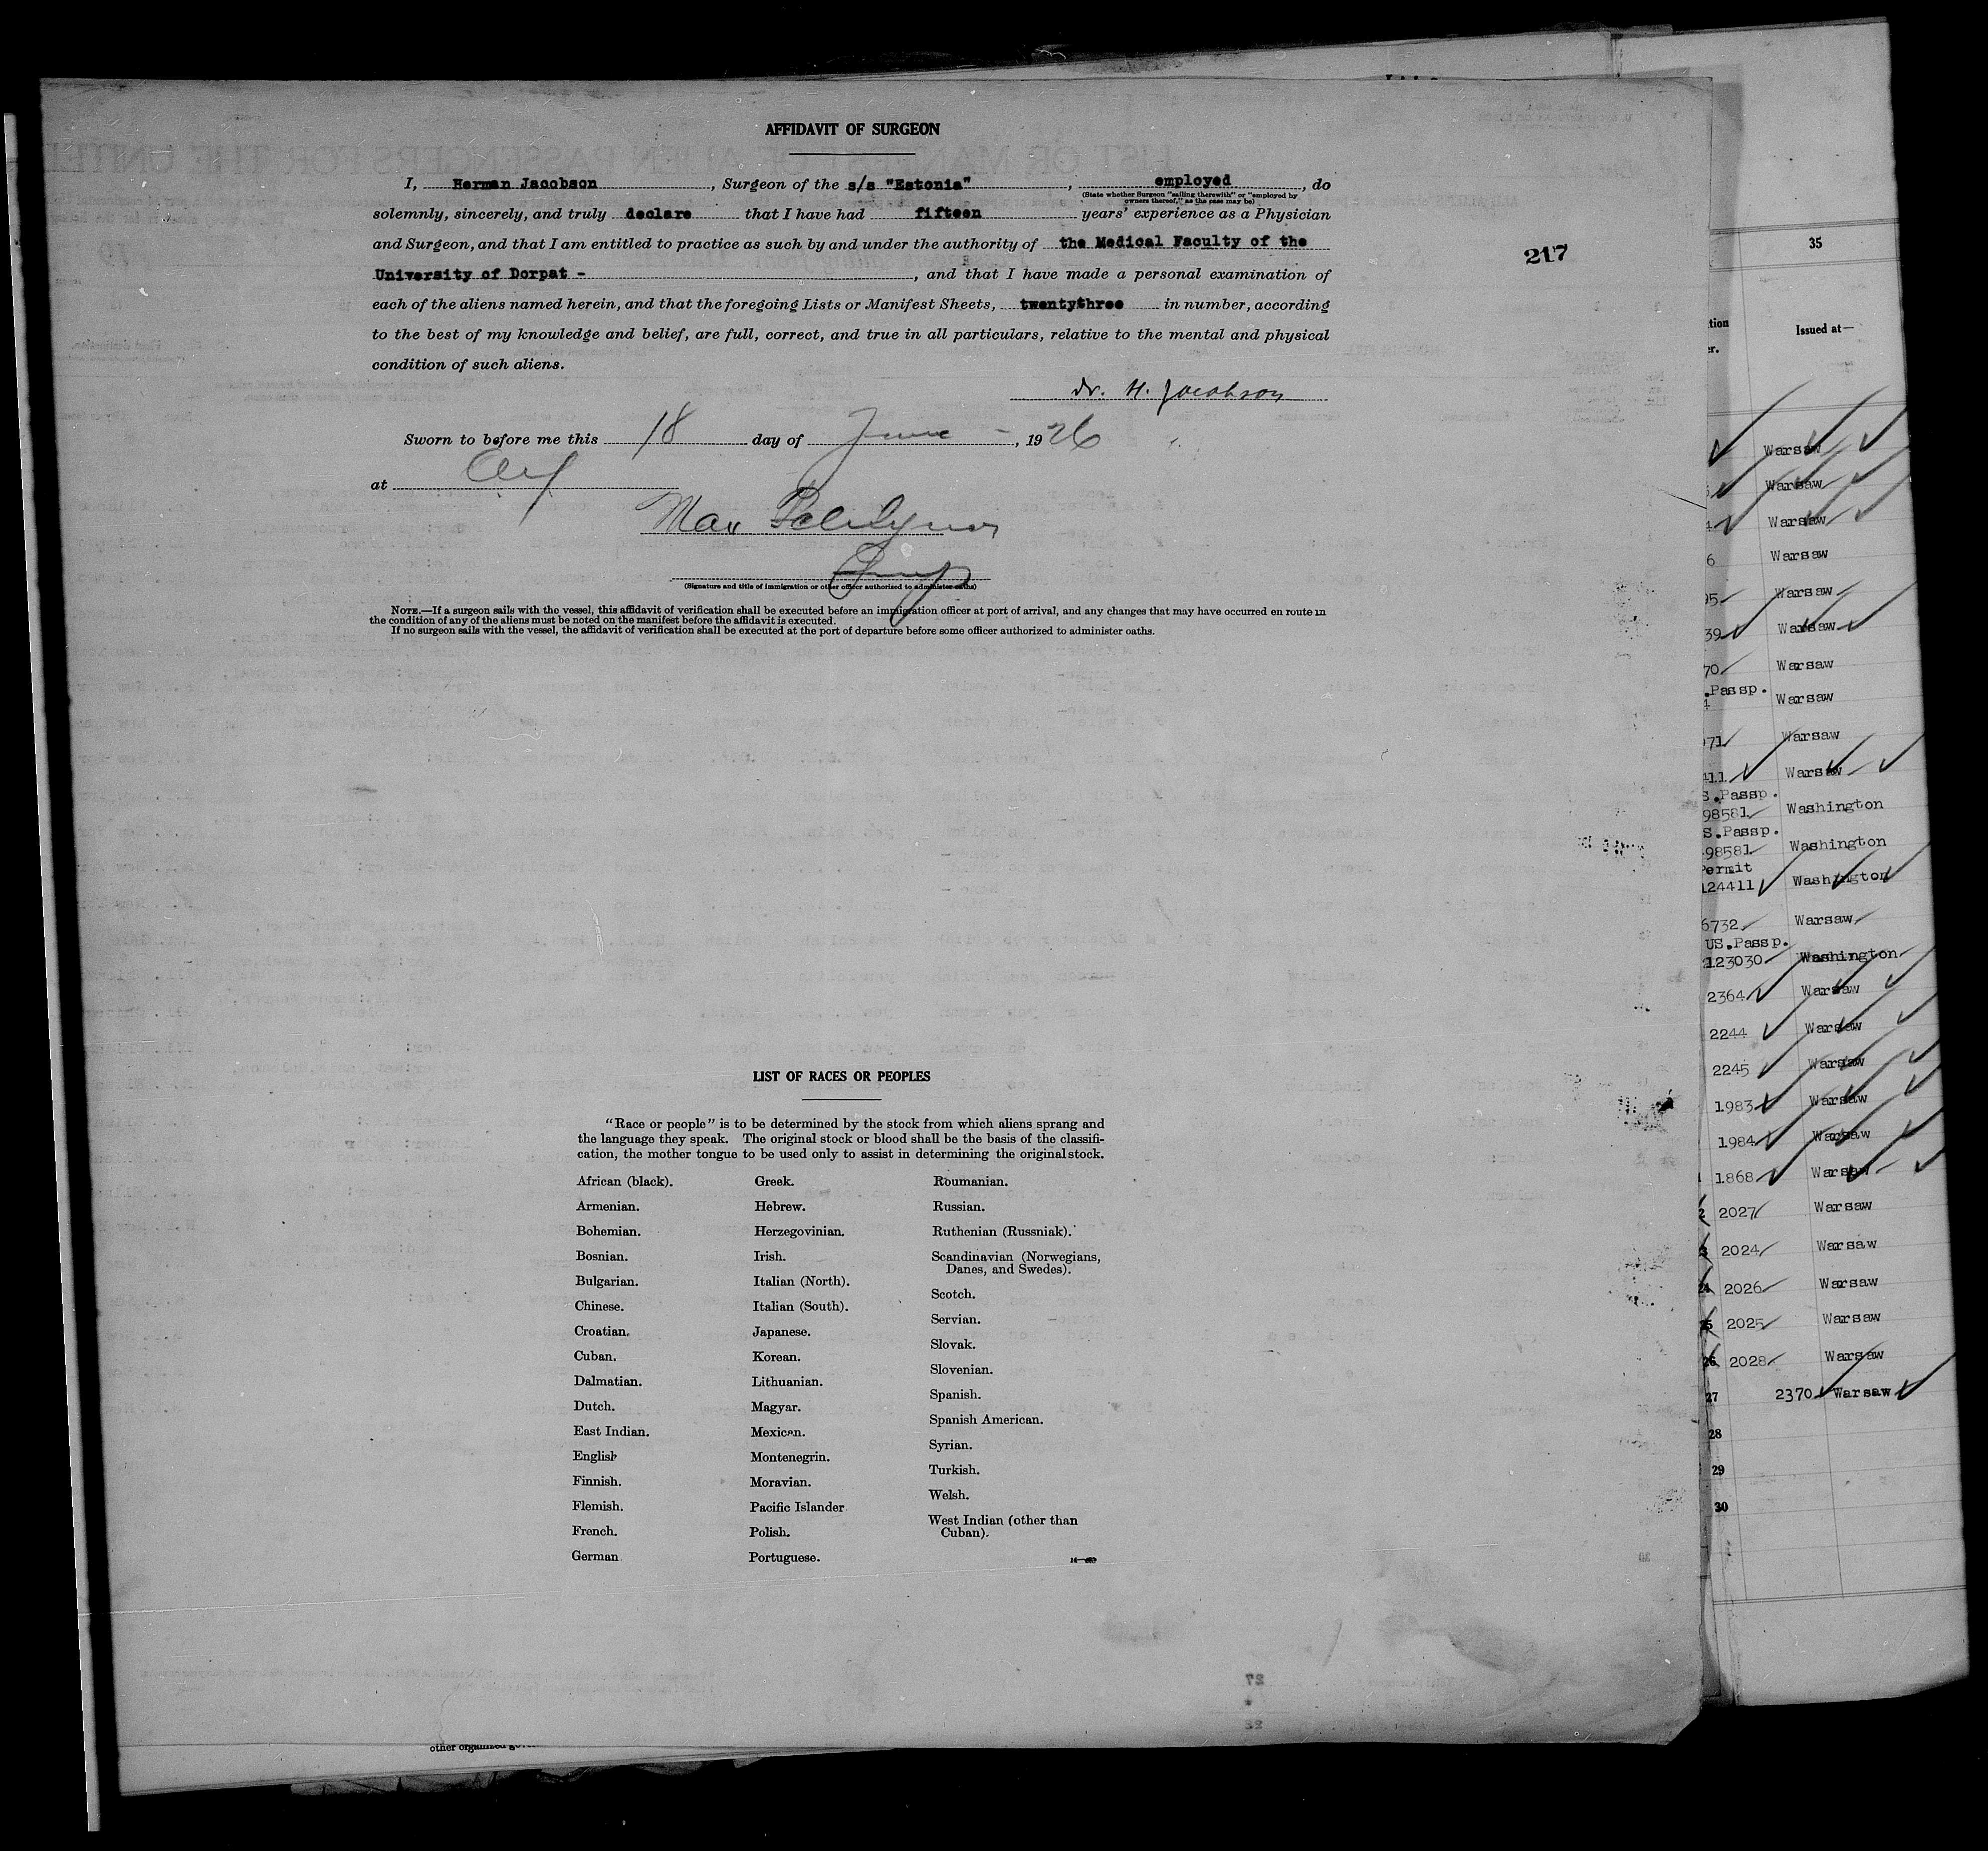 AFFIDAVIT OF SURGEON
I, Herman Jacobson, Surgeon of the s/s "Estonia", employed, do
(State whether Surgeon "sailing therewith" or "employed by
owners thereof," as the case may be)
solemnly, sincerely, and truly declare that I have had fifteen years' experience as a Physician
and Surgeon, and that I am entitled to practice as such by and under the authority of the Medical Faculty of the
University of Dorpat -, and that I have made a personal examination of
each of the aliens named herein, and that the foregoing Lists or Manifest Sheets, twentythree in number, according
to the best of my knowledge and belief, are full, correct, and true in all particulars, relative to the mental and physical
condition of such aliens.
217
Dr. H. Jacobson
Sworn to before me this 18 day of June - , 1926
at
Max
(Signature and title of immigration or other officer authorized to administer oaths)
NOTE.—If a surgeon sails with the vessel, this affidavit of verification shall be executed before an immigration officer at port of arrival, and any changes that may have occurred en route in
the condition of any of the aliens must be noted on the manifest before the affidavit is executed.
If no surgeon sails with the vessel, the affidavit of verification shall be executed at the port of departure before some officer authorized to administer oaths.
LIST OF RACES OR PEOPLES
"Race or people" is to be determined by the stock from which aliens sprang and
the language they speak. The original stock or blood shall be the basis of the classifi-
cation, the mother tongue to be used only to assist in determining the original stock.
African (black).
Armenian.
Bohemian.
Bosnian.
Bulgarian.
Chinese.
Croatian.
Cuban.
Dalmatian.
Dutch.
East Indian.
English
Finnish.
Flemish.
French.
German
Greek.
Hebrew.
Herzegovinian.
Irish.
Italian (North).
Italian (South).
Japanese.
Korean.
Lithuanian.
Magyar.
Mexican.
Montenegrin.
Moravian.
Pacific Islander
Polish.
Portuguese.
Roumanian.
Russian.
Ruthenian (Russniak).
Scandinavian (Norwegians,
Danes, and Swedes).
Scotch.
Servian.
Slovak.
Slovenian.
Spanish.
Spanish American.
Syrian.
Turkish.
Welsh.
West Indian (other than
Cuban).
35
Issued at—
Warsaw
Warsaw
Warsaw
6 Warsaw
95 Warsaw
39 Warsaw
70 Warsaw
.Passp.
4 Warsaw
71 Warsaw
411 Warsaw
S.Passp.
98581 Washington
S.Passp.
98581 Washington
Permit
124411 Washington
6732 Warsaw
US.Passp.
123030 Washington
2364 Warsaw
2244 Warsaw
2245 Warsaw
1983 Warsaw
1984 Warsaw
1868 Warsaw
2 2027 Warsaw
3 2024 Warsaw
24 2026 Warsaw
25 2025 Warsaw
26 2028 Warsaw
27 2370 Warsaw
28
29
30